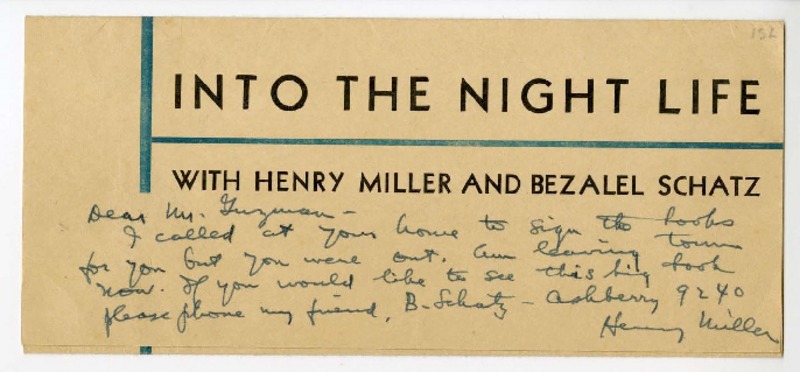 132
INTO THE NIGHT LIFE
WITH HENRY MILLER AND BEZALEL SCHATZ
Dear Mr. Guzman –
I called at your home to sign the books
for you but you were out. Am leaving town
now. If you would like to see this big book
please phone my friend, B. Schatz – Ashberry 9240
Henry Miller